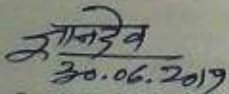 ज्ञानदेव
30.06.2019